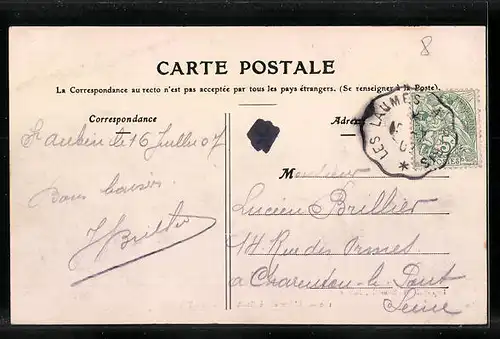 8
CARTE POSTALE
La Correspondance au recto n'est pas acceptée par tous les pays étrangers. (Se renseigner à la Poste).
Correspondance
St Aubin le 16 Juillet 07
Bons baisers
Adres
LES LAUMES
Monsieur
Lucien Brillier
14 Rue des Ormes
a Charenton-le-Pont
Seine